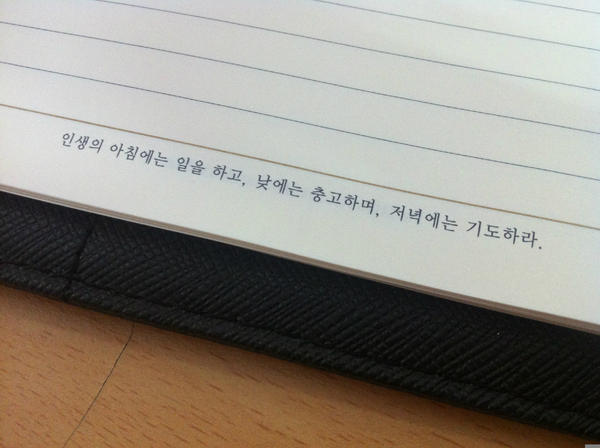 인생의 아침에는 일을 하고, 낮에는 충고하며, 저녁에는 기도하라.